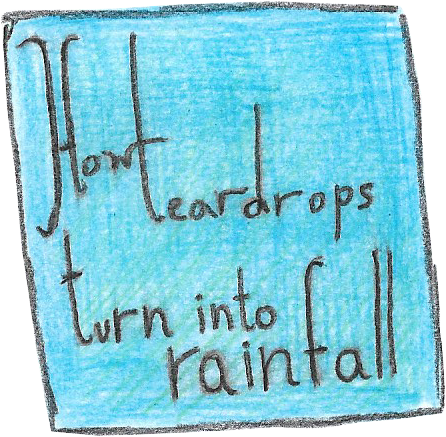 How
teardrops
turn into
rainfall